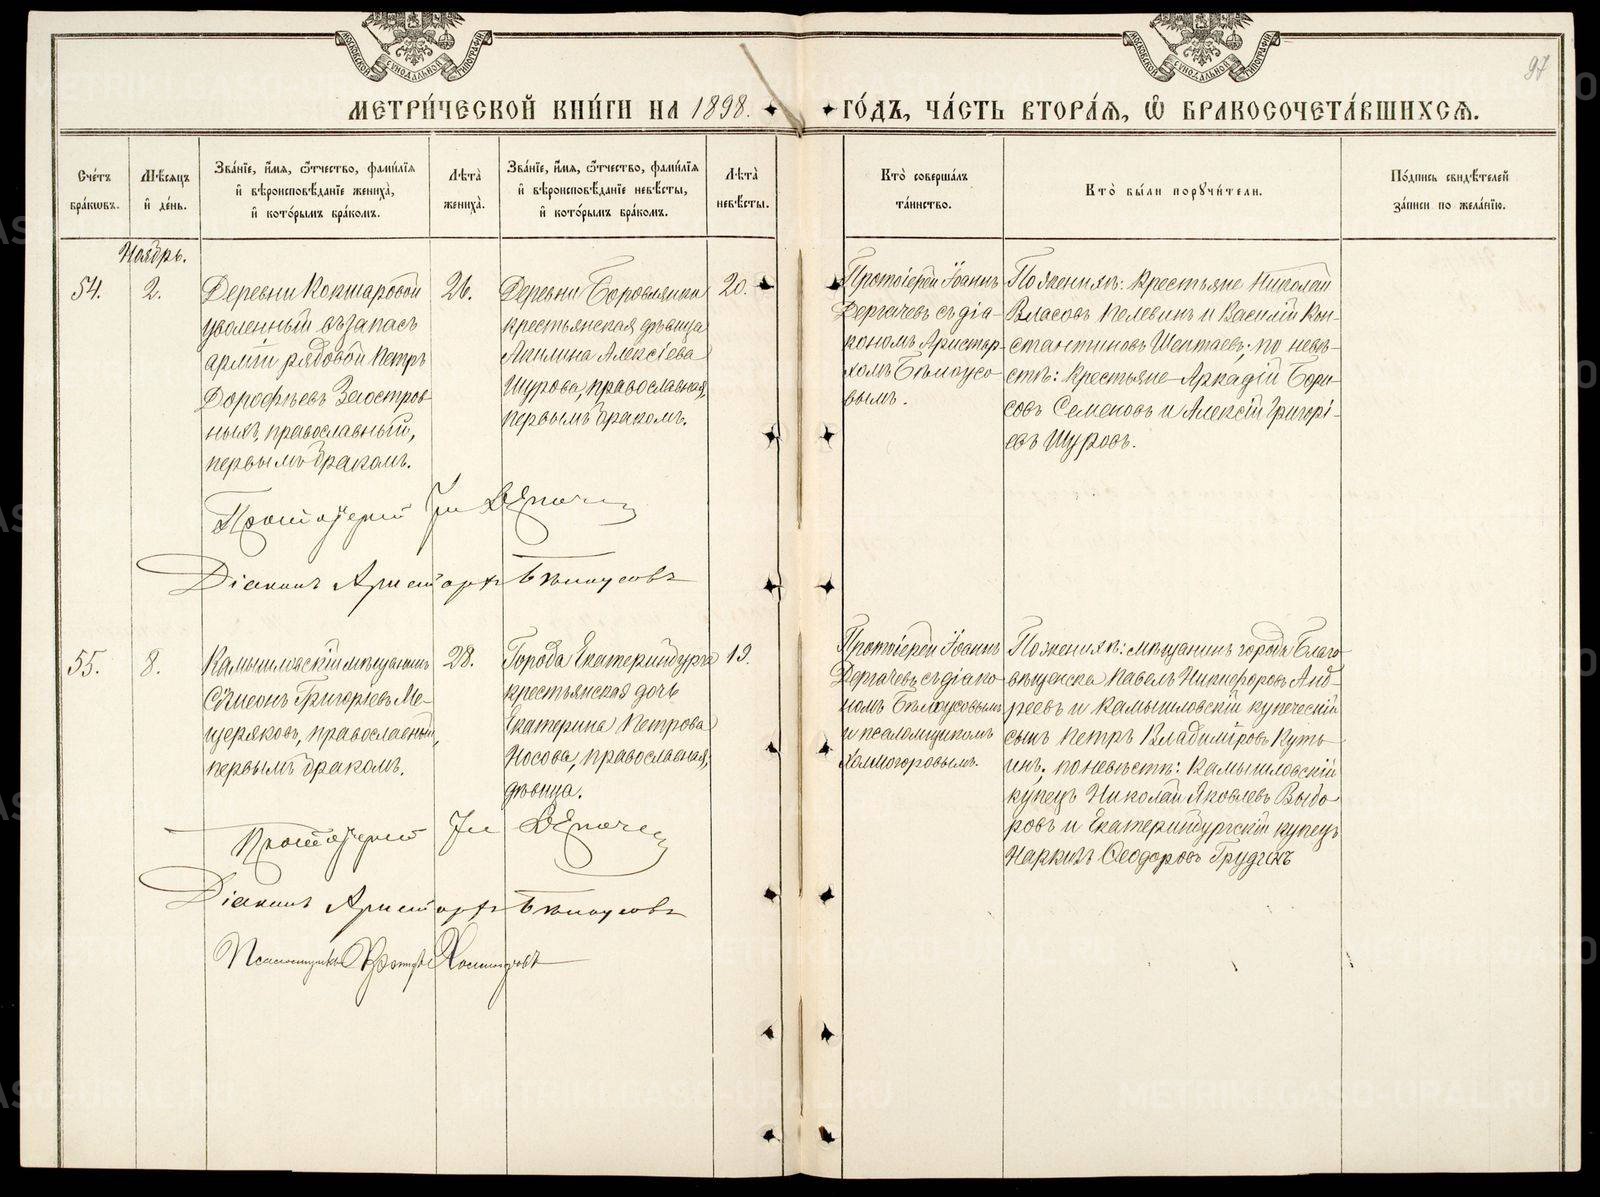 МОСКОВСКОЙ СѴНОДАЛЬНОЙ ТИПОГРАФІИ
МОСКОВСКОЙ СѴНОДАЛЬНОЙ ТИПОГРАФІИ
97
МЕТРИ́ЧЕСКОЙ КНИ́ГИ НА 1898. ГО́ДЪ, ЧА́СТЬ ВТОРА́Ѧ, Ѽ БРАКОСОЧЕТА́ВШИХСѦ.
Сче́тъ бра́кѡвъ.
Мѣ́сѧцъ и҆ де́нь.
Зва́нїе, и҆́мѧ, ѻ҆́тчество, фами́лїѧ и҆ вѣроисповѣ́данїе жениха̀, и҆ кото́рымъ бра́комъ.
Лѣ́та̀ жениха̀.
Зва́нїе, и҆́мѧ, ѻ҆́тчество, фами́лїѧ и҆ вѣроисповѣ́данїе невѣ́сты, и҆ кото́рымъ бра́комъ.
Лѣ́та̀ невѣ́сты.
Кто̀ соверша́лъ та́инство.
Кто̀ бы́ли порꙋчи́тели.
По́дпись свидѣ́телей за́писи по жела́нїю.
Ноябрь.
54.
2.
Деревни Кокшаровой
уволенный въ запасъ
арміи рядовой Петръ
Дорофѣевъ Заостров-
ныхъ, православный,
первымъ бракомъ.
26.
Деревни Боровлянки
крестьянская дѣвица
Акилина Алексіева
Щурова, православная,
первымъ бракомъ.
20.
Протоіерей Іоаннъ
Дергачевъ съ діа-
кономъ Аристар-
хомъ Бѣлоусо-
вымъ.
По женихѣ: крестьяне Николай
Власовъ Пелевинъ и Василій Кон-
стантиновъ Шептаевъ; по невѣ-
стѣ: крестьяне Аркадій Бори-
совъ Семеновъ и Алексій Григорі-
евъ Щуровъ.
Протоіерей Іоаннъ Дергачевъ
Діаконъ Аристархъ Бѣлоусовъ
55.
8.
Камышловскій мѣщанинъ
Сѵмеонъ Григоріевъ Ме-
щеряковъ, православный,
первымъ бракомъ.
28.
Города Екатеринбурга
крестьянская дочь
Екатерина Петрова
Носова, православная,
дѣвица.
19.
Протоіерей Іоаннъ
Дергачевъ съ діако-
номъ Бѣлоусовымъ
и псаломщикомъ
Холмогоровымъ.
По женихѣ: мѣщанинъ города Благо-
вѣщенска Павелъ Никифоровъ Анд-
реевъ и Камышловскій купеческій
сынъ Петръ Владиміровъ Путь-
инъ; по невѣстѣ: Камышловскій
купецъ Николай Яковлевъ Выбо-
ровъ и Екатеринбургскій купецъ
Наркизъ Ѳеодоровъ
Протоіерей Іоаннъ Дергачевъ
Діаконъ Аристархъ Бѣлоусовъ
Псаломщикъ Холмогоровъ
METRIKI.GASO-URAL.RU